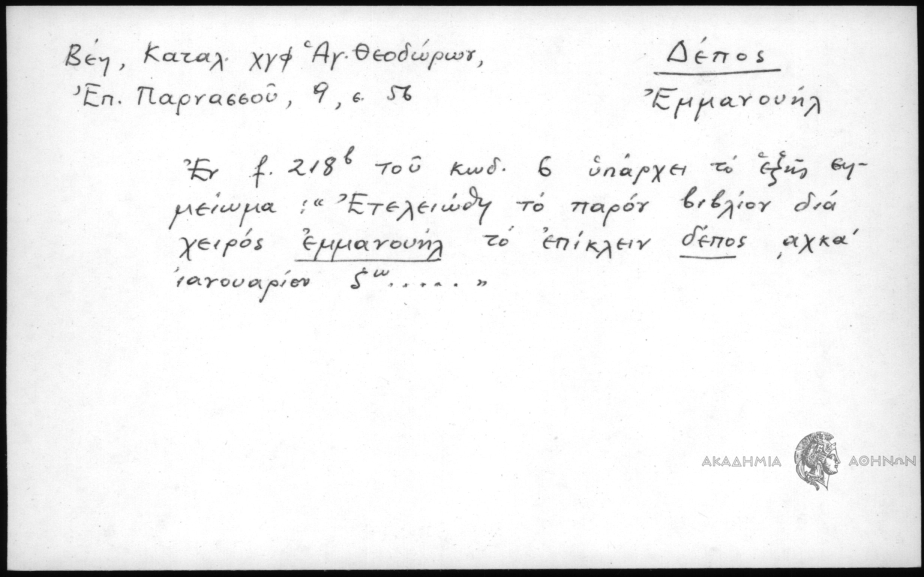 Βέη, Καταλ. χγφ Ἁγ. Θεοδώρων,
Ἐπ. Παρνασσοῦ, 9, σ. 56
Δέπος
Ἐμμανουήλ
Ἐν f. 218ᵇ τοῦ κωδ. 6 ὑπάρχει τὸ ἑξῆς ση-
μείωμα: « Ἐτελειώθη τὸ παρόν βιβλίον διά
χειρός ἐμμανουήλ τὸ ἐπίκλειν δέπος ͵αχκα΄
ἰανουαρίου ςῳ ..... »
ΑΚΑΔΗΜΙΑ ΑΘΗΝΩΝ